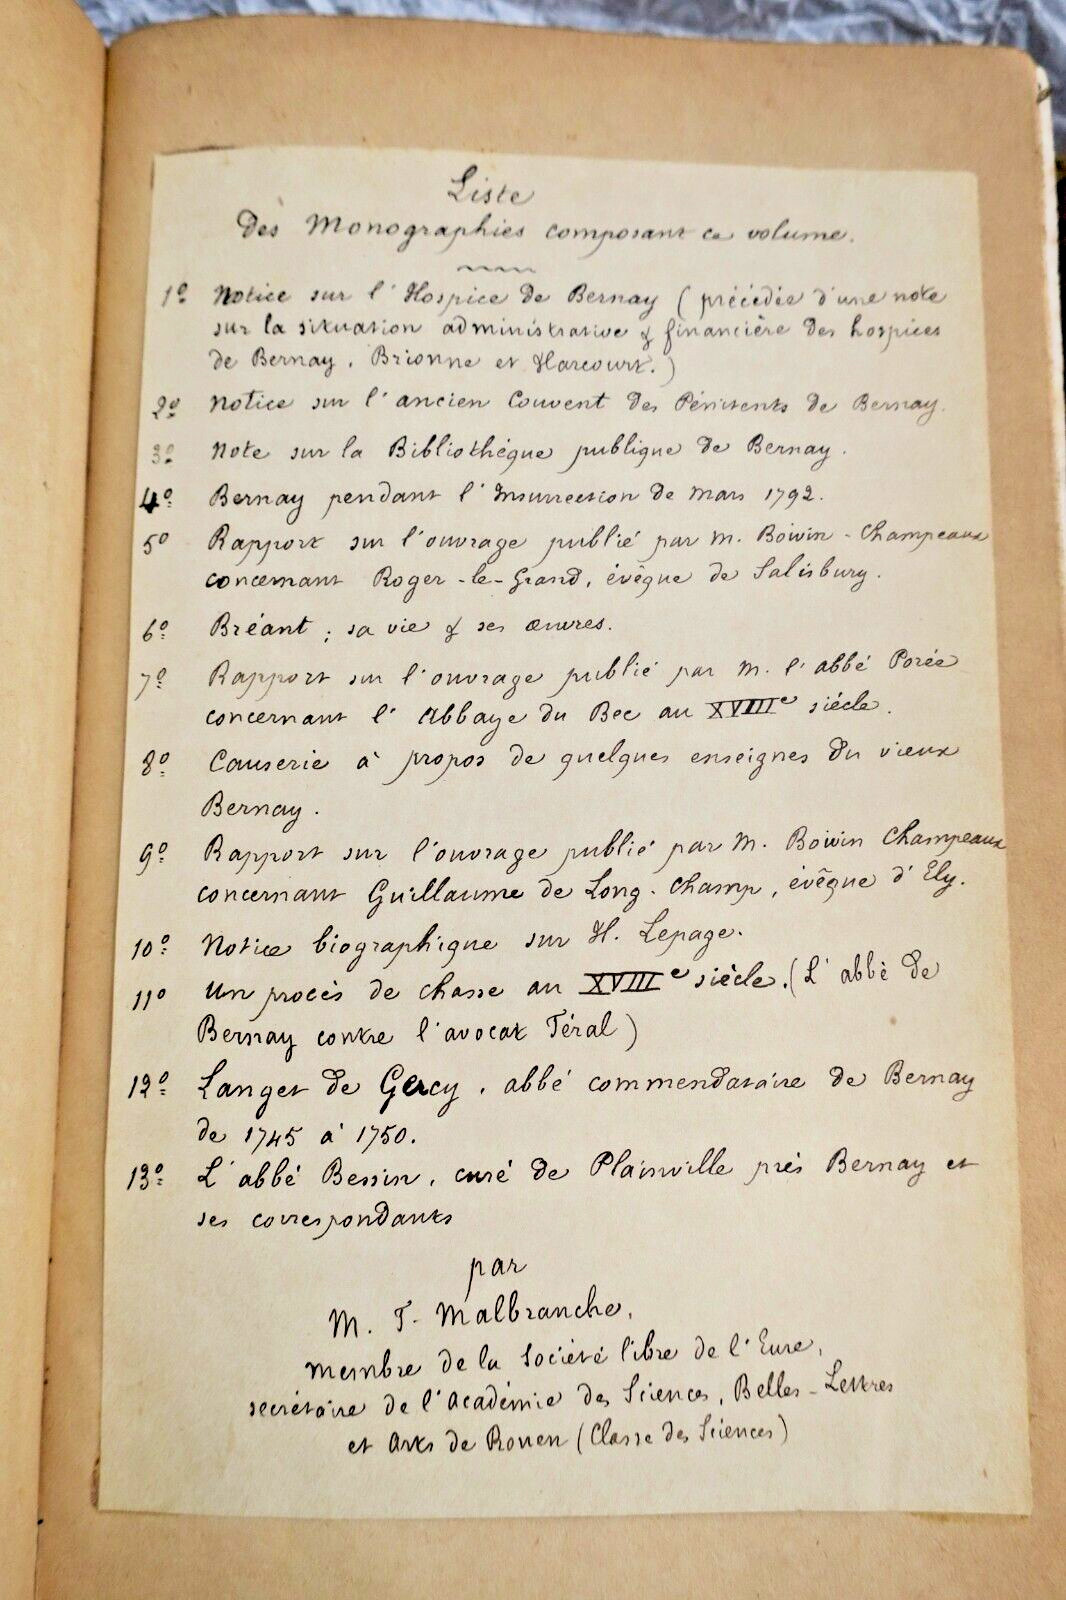 Liste
Des Monographies composant ce volume.
1º Notice sur l'Hospice de Bernay (précédée d'une note
sur la situation administrative & financière des hospices
de Bernay, Brionne et Harcourt.)
2º Notice sur l'ancien Couvent des Pénitents de Bernay.
3º Note sur la Bibliothèque publique de Bernay.
4º Bernay pendant l'Insurrection de Mars 1792.
5º Rapport sur l'ouvrage publié par M. Boivin-Champeaux
concernant Roger-le-Grand, évêque de Salisbury.
6º Bréant ; sa vie & ses œuvres.
7º Rapport sur l'ouvrage publié par M. l'abbé Porée
concernant l'Abbaye du Bec au XVIIIe siècle.
8º Causerie à propos de quelques enseignes du vieux
Bernay.
9º Rapport sur l'ouvrage publié par M. Boivin Champeaux
concernant Guillaume de Long-Champ, évêque d'Ely.
10º Notice biographique sur H. Lepage.
11º Un procès de chasse au XVIIIe siècle. (L'abbé de
Bernay contre l'avocat Téral)
12º Langet de Gercy, abbé commendataire de Bernay
de 1745 à 1750.
13º L'abbé Bessin, curé de Plainville près Bernay et
ses correspondants
par
M. F. Malbranche,
membre de la Société libre de l'Eure,
secrétaire de l'Académie des Sciences, Belles-Lettres
et Arts de Rouen (Classe des Sciences)